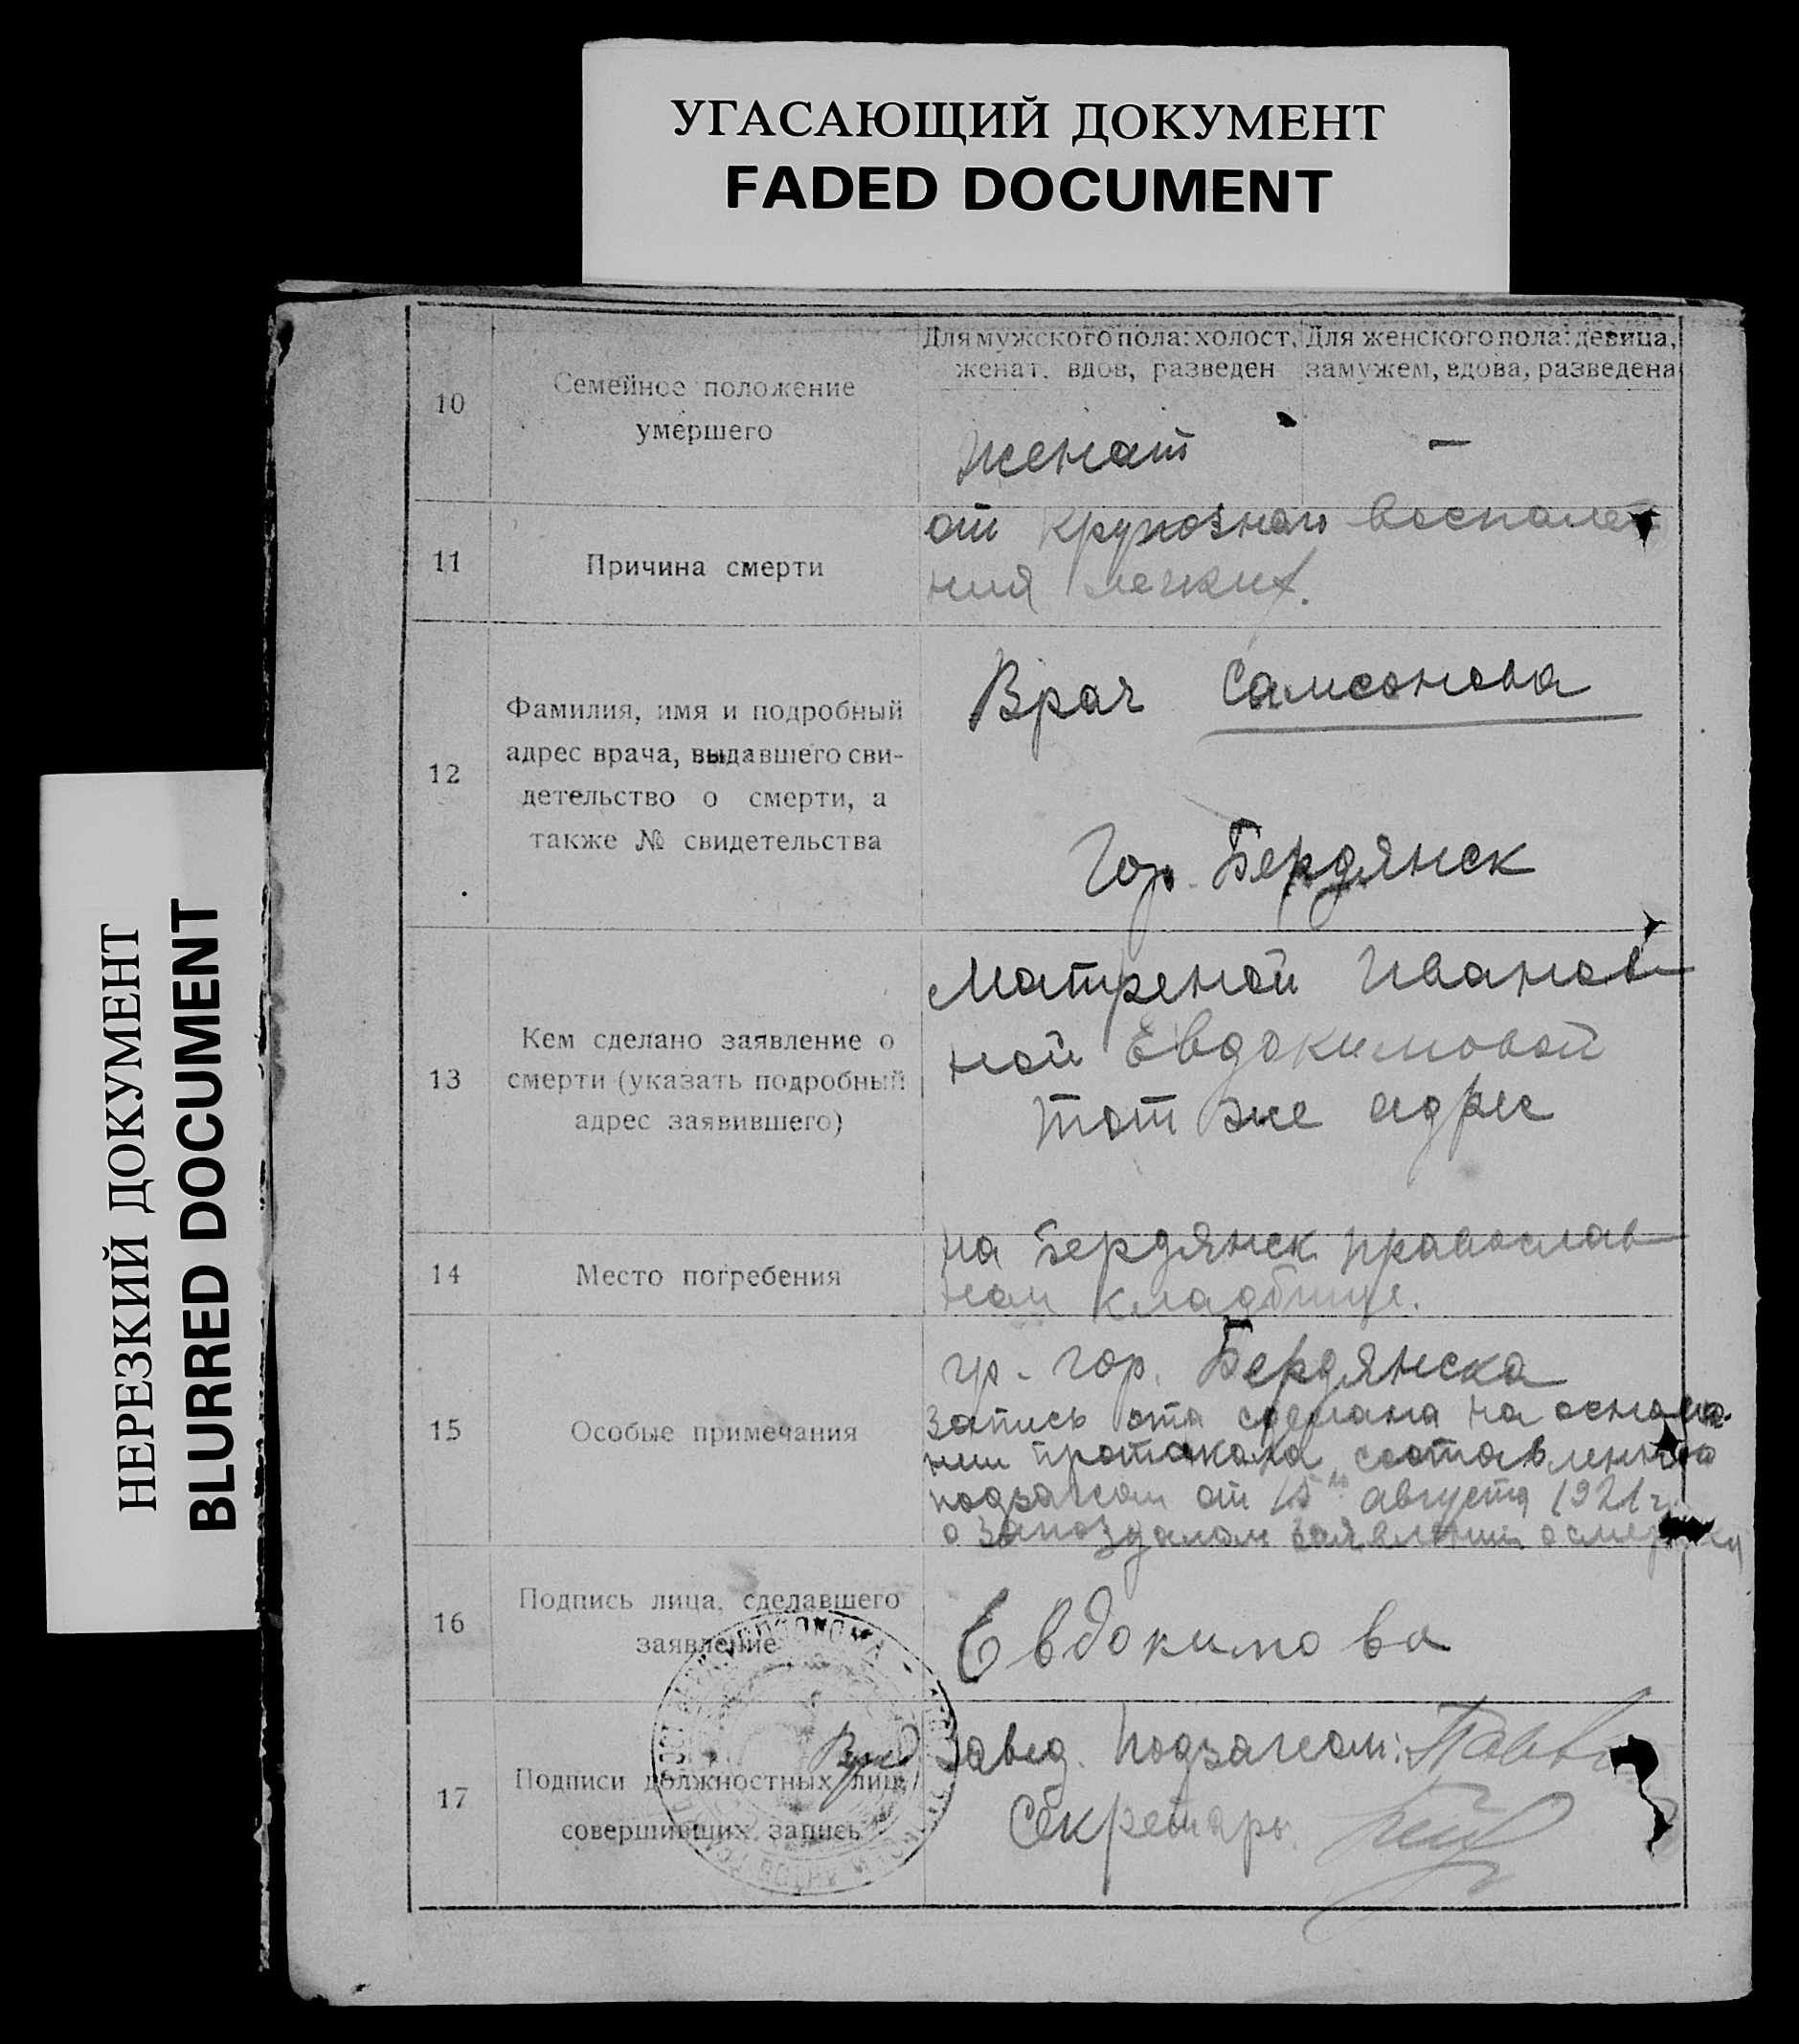 УГАСАЮЩИЙ ДОКУМЕНТ
FADED DOCUMENT
НЕРЕЗКИЙ ДОКУМЕНТ
BLURRED DOCUMENT
10
Семейное положение
умершего
Для мужского пола: холост,
женат, вдов, разведен
Для женского пола: девица,
замужем, вдова, разведена
Женат
—
11
Причина смерти
от крупознаго воспален
ния легких.
12
Фамилия, имя и подробный
адрес врача, выдавшего сви-
детельство о смерти, а
также № свидетельства
Врач Самсонова
Гор. Бердянск
13
Кем сделано заявление о
смерти (указать подробный
адрес заявившего)
Матреной Иванов
ной Евдокимовой
тот же адрес
14
Место погребения
на Бердянск православ
ном кладбище.
15
Особые примечания
гр. гор. Бердянска
Запись эта сделана на основа-
нии протокола составленного
подзагсом от 15го августа 1921 г.
о запоздалом заявлении о смерти
16
Подпись лица, сделавшего
заявление
Евдокимова
17
Подписи должностных лиц,
совершивших запись
Завед. Подзагсом:
Секретарь